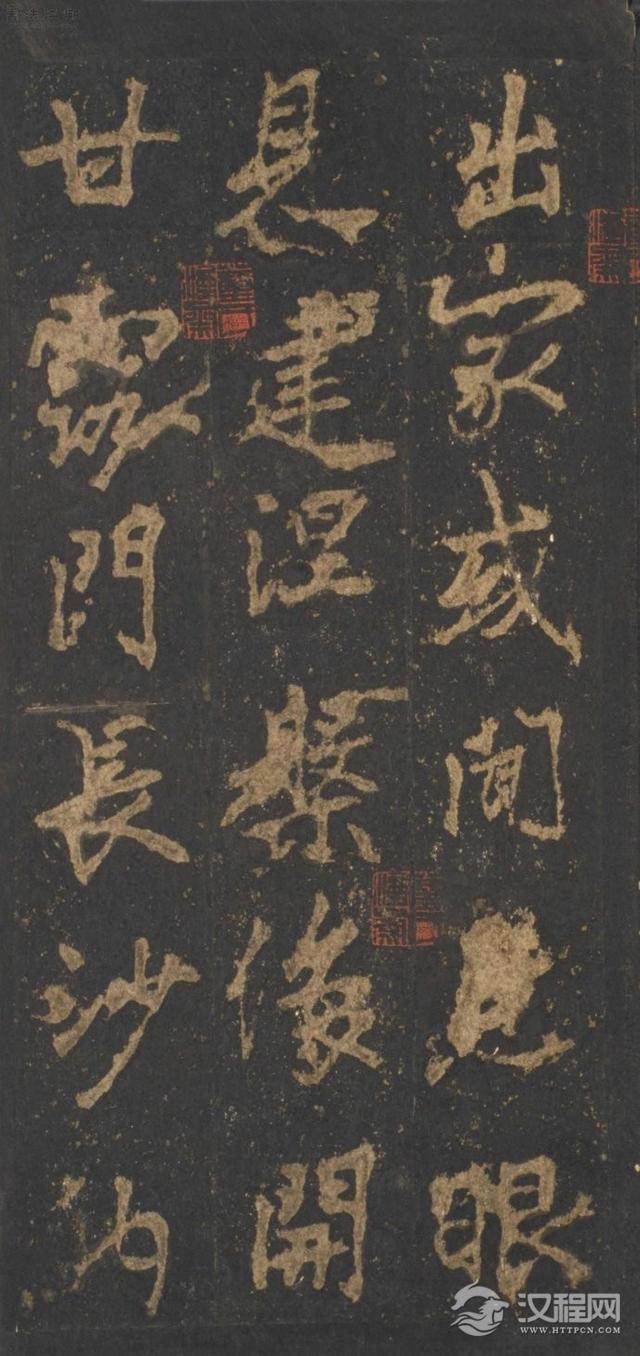 出家或聞眼
建涅槃復開
甘露門長沙內
汉程网
WWW.HTTPCN.COM